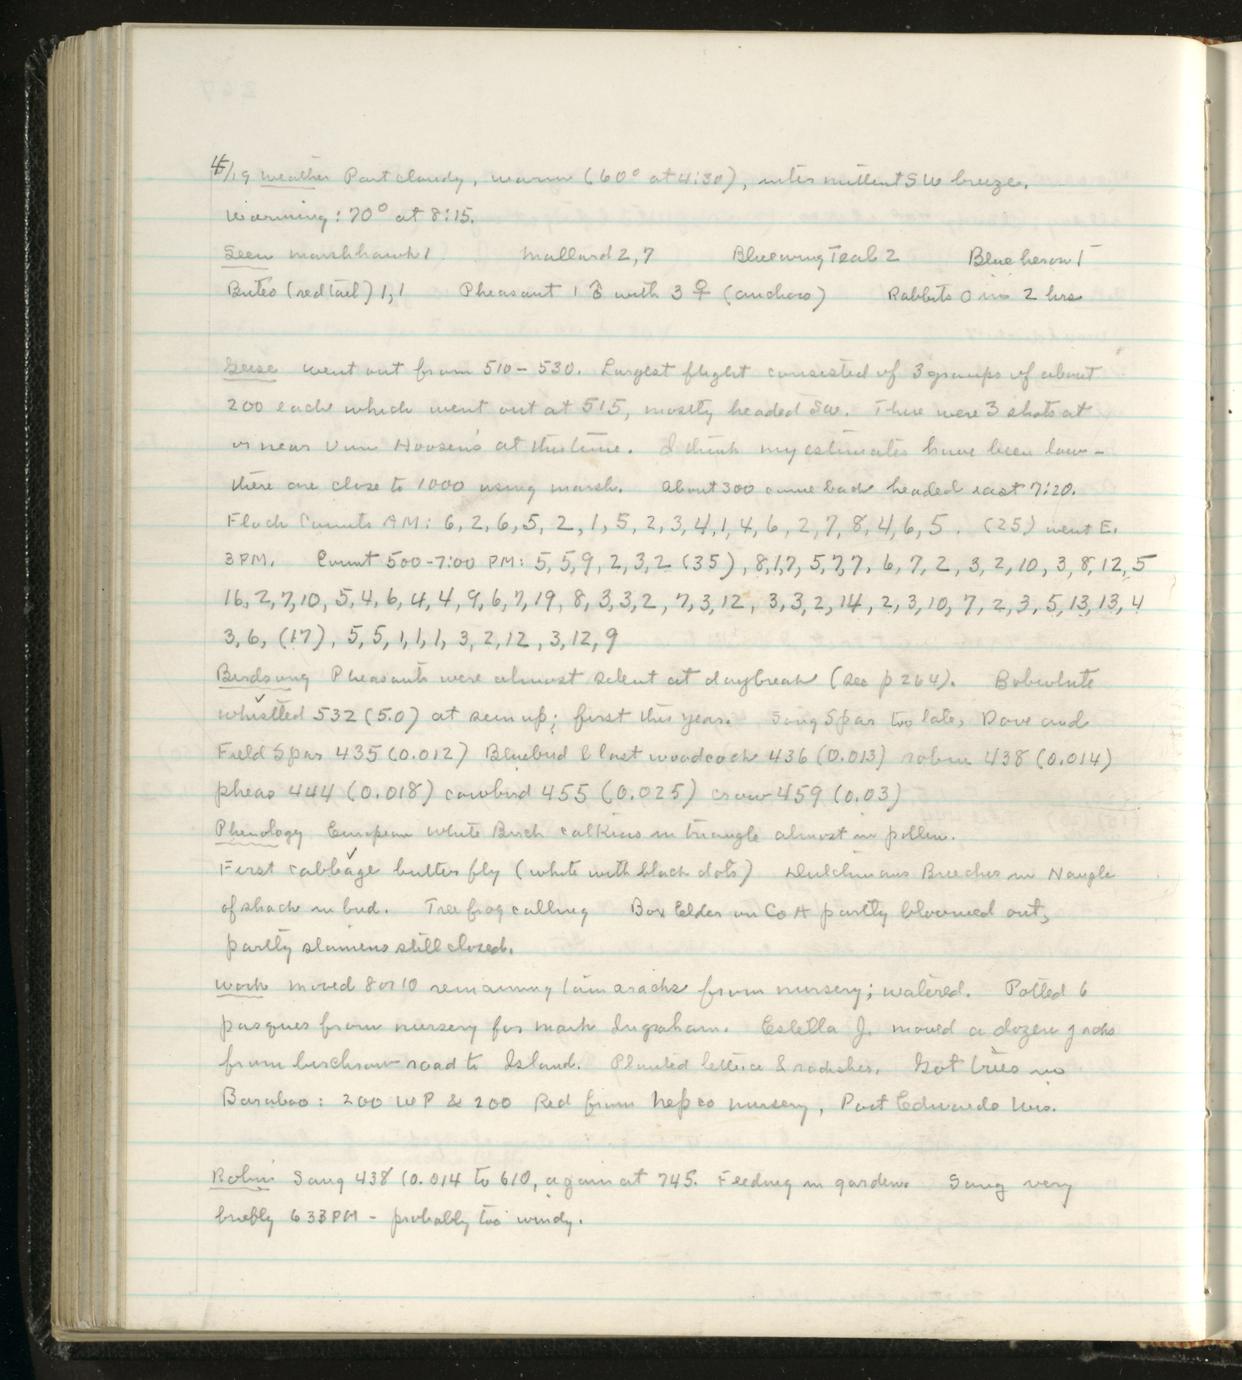 4/19 Weather Part cloudy, warm (60° at 4:30), intermittent SW breeze.
Warming: 70° at 8:15.
Seen marshhawk 1 Mallard 2, 7 Bluewing Teal 2 Blue heron 1
Buteo (redtail) 1, 1 Pheasant 1 ♂ with 3 ♀ (anchors) Rabbits 0 in 2 hrs
Geese went out from 510-530. Largest flight consisted of 3 groups of about
200 each which went out at 515, mostly headed SW. There were 3 shots at
or near Van Hoosen's at this time. I think my estimates have been low-
there are close to 1000 using marsh. About 300 came back headed east 7:20.
Flock Counts AM: 6, 2, 6, 5, 2, 1, 5, 2, 3, 4, 1, 4, 6, 2, 7, 8, 4, 6, 5. (25) went E.
3 PM. Count 500-7:00 PM: 5, 5, 9, 2, 3, 2 (35), 8, 1, 7, 5, 7, 7, 6, 7, 2, 3, 2, 10, 3, 8, 12, 5
16, 2, 7, 10, 5, 4, 6, 4, 4, 9, 6, 7, 19, 8, 3, 3, 2, 7, 3, 12, 3, 3, 2, 14, 2, 3, 10, 7, 2, 3, 5, 13, 13, 4
3, 6, (17), 5, 5, 1, 1, 1, 3, 2, 12, 3, 12, 9
Birdsong Pheasants were almost silent at daybreak (see p 264). Bobwhite
whistled 532 (5.0) at sun up; first this year. Song Spar too late, Dove and
Field Spar 435 (0.012) Bluebird & last woodcock 436 (0.013) robin 438 (0.014)
pheas 444 (0.018) cowbird 455 (0.025) crow 459 (0.03)
Phenology European White Birch catkins in triangle almost in pollen.
First cabbage butterfly (white with black dots) Dutchmans Breeches in N angle
of shack in bud. Tree frog calling Box Elder on Co A partly bloomed out,
partly stamens still closed.
Work moved 8 or 10 remaining tamaracks from nursery; watered. Potted 6
pasques from nursery for Mark Ingraham. Estella J. moved a dozen j acks
from birchrow road to Island. Planted lettuce & radishes. Got trees in
Baraboo: 200 WP & 200 Red from Nepco nursery, Port Edwards Wis.
Robin Sang 438 (0.014 to 610, again at 745. Feeding in garden. Sang very
briefly 633 PM - probably too windy.